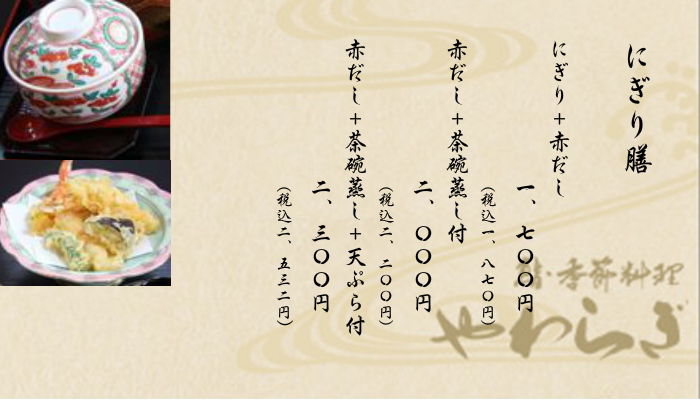 にぎり膳
にぎり+赤だし
一、七〇〇円
(税込一、八七〇円)
赤だし+茶碗蒸し付
二、〇〇〇円
(税込二、二〇〇円)
赤だし+茶碗蒸し+天ぷら付
二、三〇〇円
(税込二、五三二円)
鮨・季節料理
やわらぎ